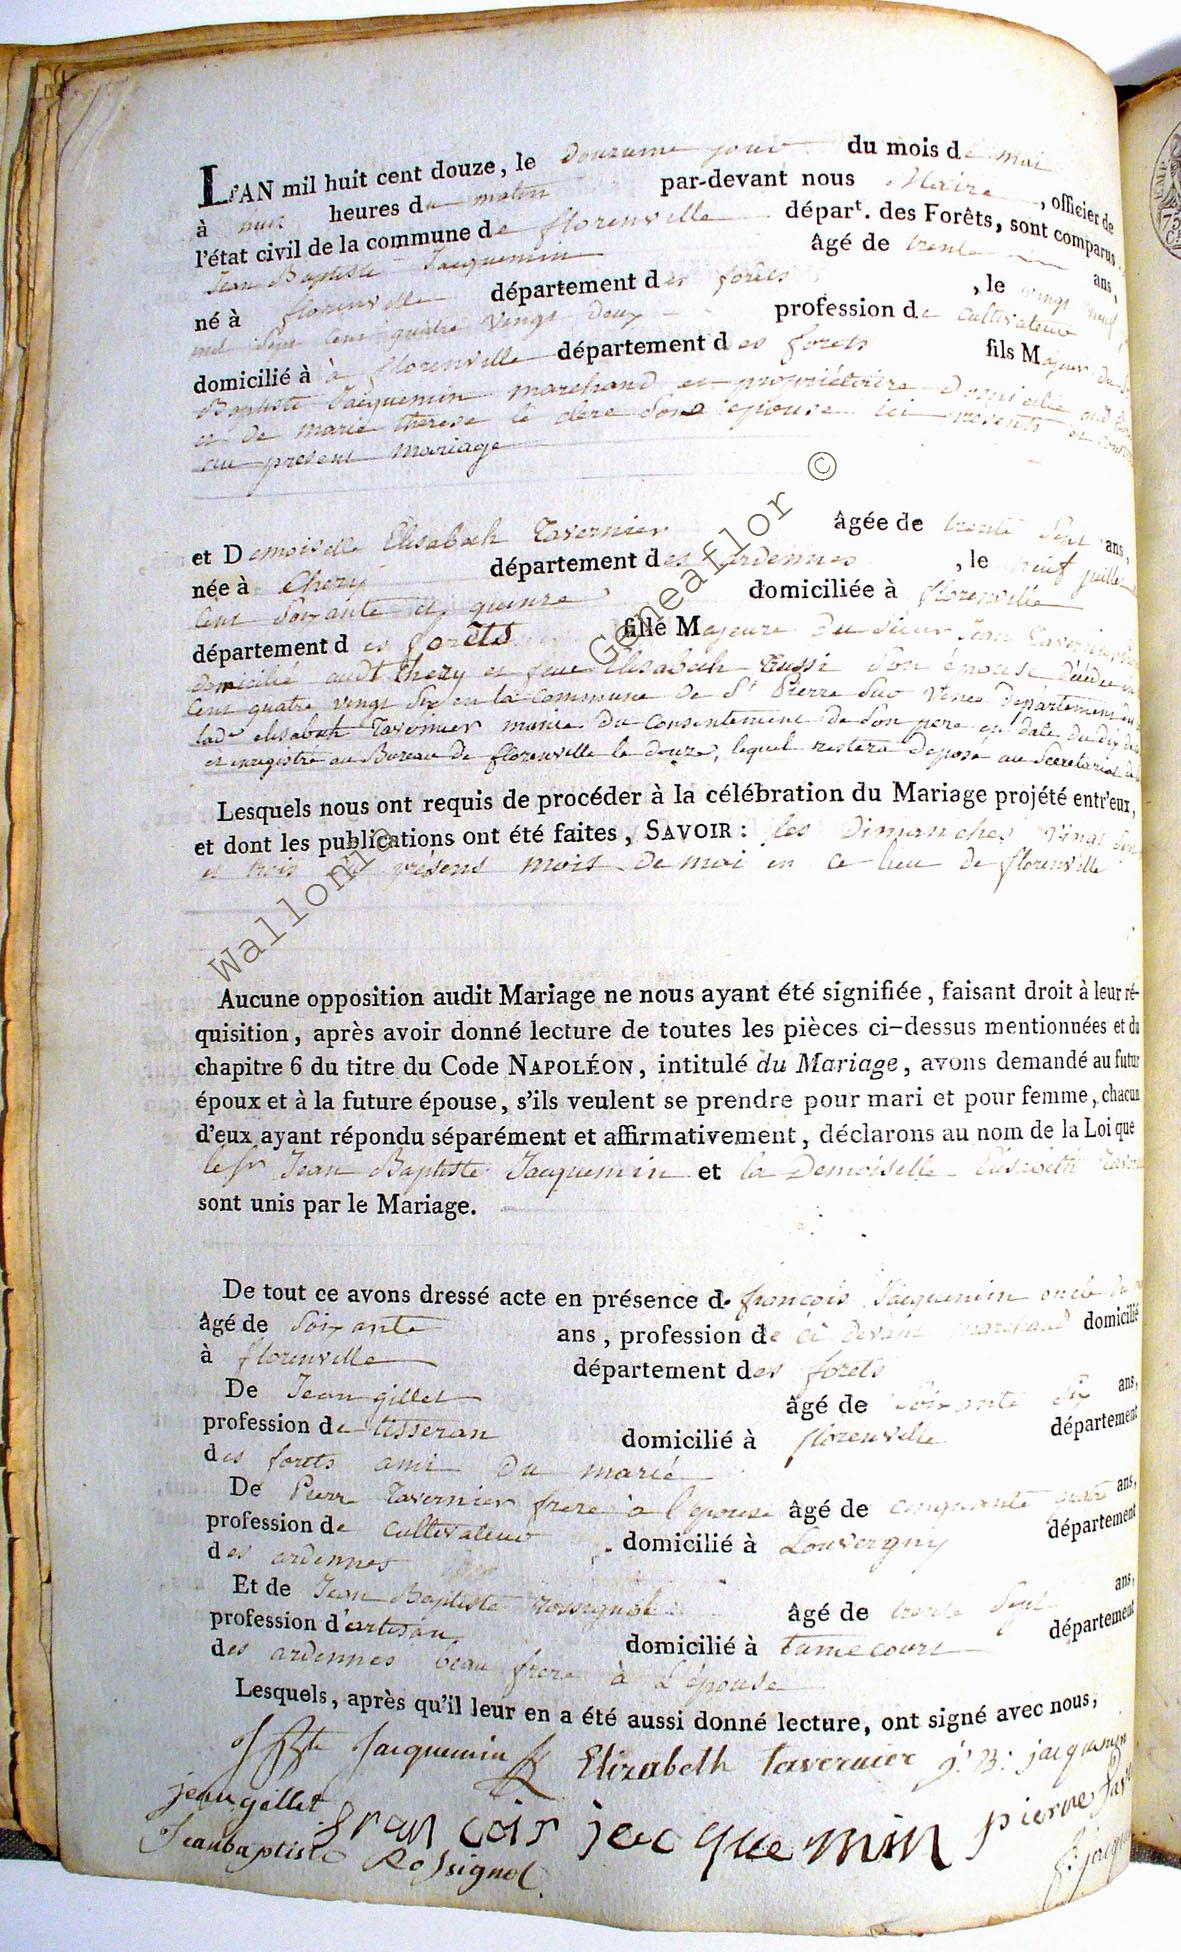 L'AN mil huit cent douze, le douzieme jour du mois de mai
à huit heures du matin par-devant nous Maire, officier de
l'état civil de la commune de florenville départ. des Forêts, sont comparus
Jean Baptiste Jacquemin âgé de trente ans,
né à florenville département des forets, le vingt neuf
mil Sept Cent quatre vingt deux profession de cultivateur
domicilié à à florenville département des forets fils Majeur du Sr
Baptiste Jacquemin marchand et propriétaire Domicilié aud
et de marie therese le clère Son epouse ici présents et
au présent mariage
et Demoiselle Elisabeth Tavernier âgée de trente Sept ans,
née à Chery département des ardennes, le huit juillet
Cent Soixante et quinze, domiciliée à florenville
département des forêts fille Majeure du Sieur Jean Tavernier
domicilié audt Chery et feue Elisabeth Son épouse décédée
Cent quatre vingt Six en la Commune de St Pierre Sur Vence Département
lade elisabeth Tavernier munie du Consentement de Son père en date du dix
et enregistré au Bureau de florenville le douze, lequel restera Déposé au Secretariat
Lesquels nous ont requis de procéder à la célébration du Mariage projété entr'eux,
et dont les publications ont été faites, SAVOIR : les Dimanches vingt Six
et trois du présent mois de mai en ce lieu de florenville
Aucune opposition audit Mariage ne nous ayant été signifiée, faisant droit à leur ré-
quisition, après avoir donné lecture de toutes les pièces ci-dessus mentionnées et du
chapitre 6 du titre du Code NAPOLÉON, intitulé du Mariage, avons demandé au futur
époux et à la future épouse, s'ils veulent se prendre pour mari et pour femme, chacun
d'eux ayant répondu séparément et affirmativement, déclarons au nom de la Loi que
le Sr Jean Baptiste Jacquemin et la Demoiselle Elisabeth
sont unis par le Mariage.
De tout ce avons dressé acte en présence de françois Jacquemin oncle du
âgé de Soixante ans, profession de ci devant marchand domicilié
à florenville département des forets
De Jean gillet âgé de Soixante Six ans,
profession de tisseran domicilié à florenville département
des forets ami du marié
De Pierre Tavernier frere à l'epouse âgé de cinquante quatre ans,
profession de cultivateur domicilié à Louvergny département
des ardennes
Et de Jean Baptiste rossignol âgé de trente Sept ans,
profession d'artisan domicilié à tumecourt département
des ardennes beau frere à l'épouse
Lesquels, après qu'il leur en a été aussi donné lecture, ont signé avec nous,
J Bte Jacquemin Elizabeth tavernier J. B. jacquemin
jean gillet francois jacquemin pierre
Jean baptiste Rossignol
Wallonie Geneaflor ©